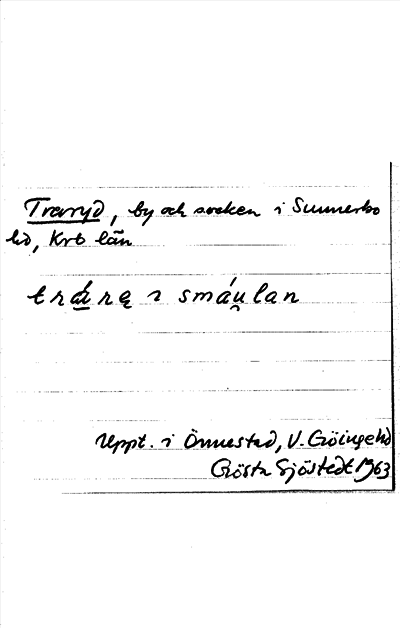 Traryd, by och socken i Sunnerbo
hd, Krb län
trárę i smáu̯lan
Uppt. i Önnestad, V. Göingehd
Gösta Sjöstedt 1963